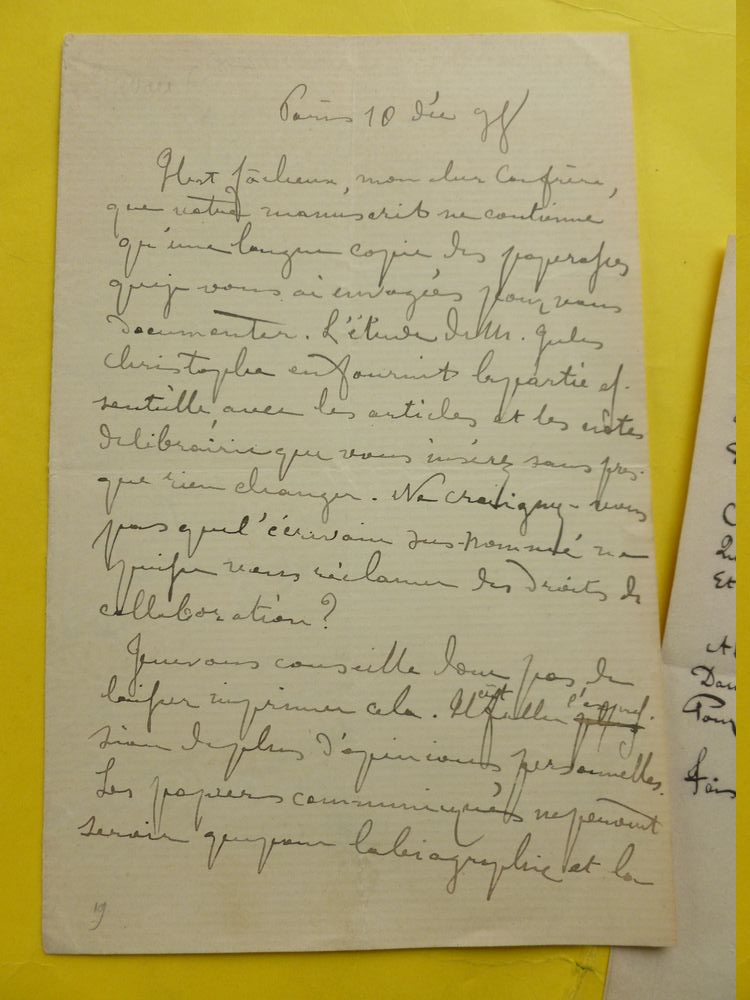 Paris 10 déc 98
Il est fâcheux, mon cher Confrère,
que votre manuscrit ne contienne
qu'une longue copie des paperasses
que je vous ai envoyées pour vous
documenter. L'étude de M. Jules
Christophe en fournit la partie es-
sentielle avec les articles et les notes
de librairie que vous insérez sans pres-
que rien changer. Ne craignez-vous
pas que l'écrivain sus-nommé ne
puisse vous réclamer des droits de
collaboration?
Je ne vous conseille donc pas de
laisser imprimer cela. Il eût fallu l'expres-
sion de plus d'opinions personnelles.
Les papiers communiqués ne peuvent
servir que pour la biographie et la
19
Qu
Et
Dan
Pour
fois